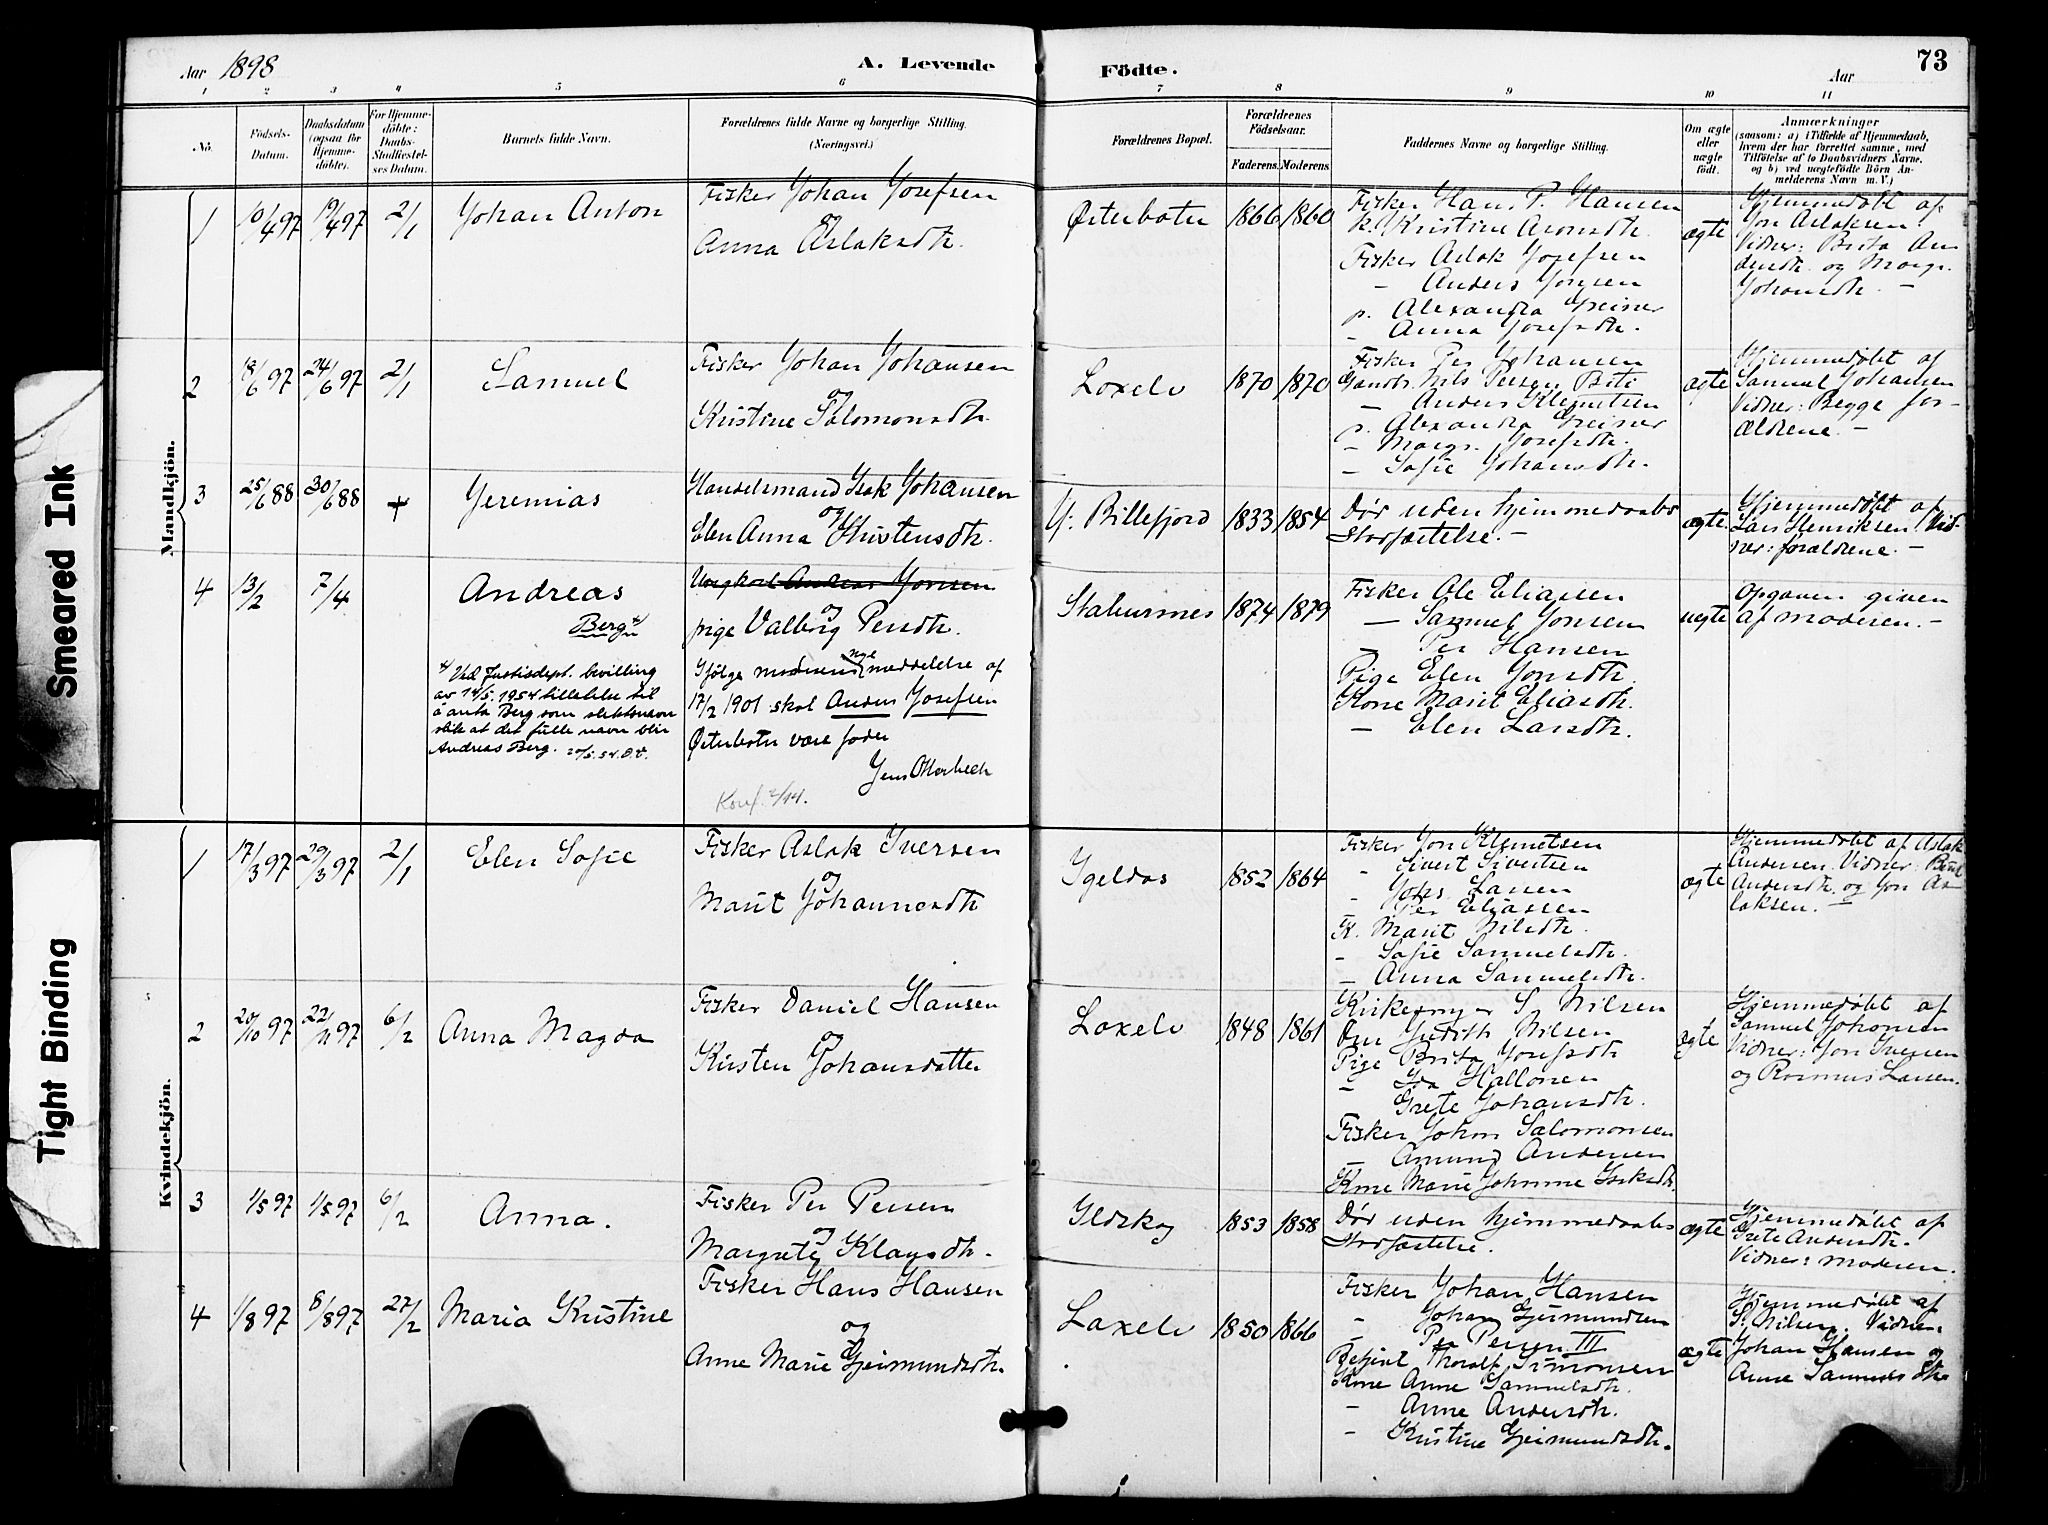 Aar 1898
A. Levende
Födte.
Aar
73
1 2 3 4 5 6 7 8 9 10 11
No.
Födsels-
Datum.
Daabsdatum
(ogsaa for
Hjemme-
döbte).
For Hjemme-
döbte:
Daabs-
Stadfæstel-
ses Datum.
Barnets fulde Navn.
Forældrenes fulde Navne og borgerlige Stilling.
(Næringsvei.)
Forældrenes Bopæl.
Forældrenes
Födselsaar.
Faderens. Moderens.
Faddernes Navne og borgerlige Stilling.
Om ægte
eller
uægte
födt.
Anmærkninger
(saasom: a) i Tilfælde af Hjemmedaab,
hvem der har forrettet samme, med
Tilföielse af to Daabsvidners Navne,
og b) ved uægtefödte Börn An-
melderens Navn m. V.)
Mandkjön.
1
10/4 97
19/4 97
2/1
Johan Anton
Fisker Johan Josefsen
og
Anna Aslaksdtr.
Østerbotn
1866
1860
Fisker Hans P. Hansen
K. Kristine Aronsdtr.
Fisker Aslak Josefsen
- Anders Jonsen
p. Alexandra Greiner
- Anna Josefsdtr.
ægte
Hjemmedøbt af
Jon Aslaksen.
Vidner: Brita An-
dersdtr. og Margr.
Johansdtr. -
2
18/6 97
24/6 97
2/1
Samuel
Fisker Johan Johansen
og
Kristine Salomonsdtr.
Laxelv
1870
1870
Fisker Per Johansen
Gaardbr. Nils Persen Beti
- Anders Klemetsen
p. Alexandra Greiner
- Margr. Josefsdtr.
- Sofie Johansdtr.
ægte
Hjemmedøbt af
Samuel Johansen
Vidner: Begge for-
ældrene. -
3
25/6 88
30/6 88
+
Jeremias
Handelsmand Isak Johansen
og
Elen Anna Kristensdtr.
Y. Billefjord
1833
1854
Dør uden hjemmedaabs
stadfæstelse. -
ægte.
Hjemmedøbt af
Lars Henriksen. Vid-
ner: forældrene. -
4
13/2
7/4
Andreas
Berg x)
x) Ved Justisdept. bevilling
av 14/5. 1954 tillatelse til
å anta Berg som slektsnavn
slik at det fulle navn blir
Andreas Berg. 20/5. 54. O.V.
Ungkarl Andreas Jonsen
og
pige Valborg Persdtr.
Ifølge moderens nye meddelelse af
17/2 1901 skal Anders Josefsen
Østerbotn være fader
Jens Otterbech
Konf. 2/14.
Stabursnes
1874
1879
Fisker Ole Eliassen
- Samuel Jonsen
- Per Hansen
Pige Elen Jonsdtr.
Kone Marit Eliasdtr.
- Elen Larsdtr.
uegte
Opgaven given
af moderen. -
Kvindekjön.
1
17/3 97
29/3 97
2/1
Elen Sofie
Fisker Aslak Iversen
og
Marit Johannesdtr
Igeldas
1852
1864
Fisker Jon Klemetsen
- Sivert Sivertsen
- Johs. Larsen
- Per Eliassen
K. Marit Nilsdtr.
- Sofie Samuelsdtr.
- Anna Samuelsdtr.
ægte
Hjemmedøbt af Aslak
Andersen. Vidner: Berit
Andersdtr. og Jon As-
laksen. -
2
20/10 97
22/11 97
6/2
Anna Magda
Fisker Daniel Hansen
og
Kirsten Johansdatter
Laxelv
1848
1861
Kirkesanger S. Nilsen
Fru Judith Nilsen
Pige Brita Josefsdtr
- Ida Hallonen
- Grete Johansdtr.
Fisker Johan Salomonsen
- Amund Andersen
Kone Marie Johanne Isaksdtr.
ægte
Hjemmedøbt af
Samuel Johansen
Vidner: Jon Iversen
og Rasmus Larsen.
3
1/5 97
1/5 97
6/2
Anna.
Fisker Per Persen
og
Margrete Klausdtr.
Ildskog
1853
1858
Dør uden hjemmedaabs
stadfæstelse.
ægte
Hjemmedøbt af
Grete Andersdtr.
Vidner: moderen.
4
1/8 97
8/8 97
27/2
Maria Kristine
Fisker Hans Hansen
og
Anne Marie Geimundsdtr.
Laxelv
1850
1866
Fisker Johan Hansen
- Johan Geimundsen
- Per Persen III
Betjent Thoralf Simonsen
Kone Anne Samuelsdtr.
- Anne Andersdtr.
- Kristine Geimundsdtr.
ægte
Hjemmedøbt af
S. Nilsen. Vidner:
Johan Hansen og
Anne Samuelsdtr
Smeared Ink
Tight Binding